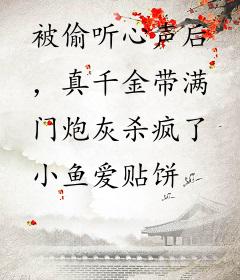 被偷听心声后
，真千金带满
门炮灰杀疯了
小鱼爱贴饼